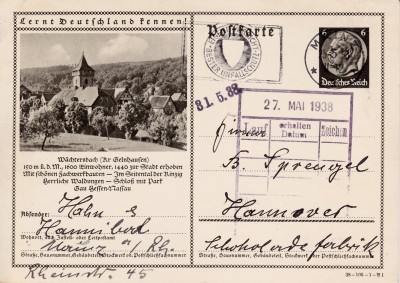 Lernt Deutschland kennen!
Postkarte
6 6
Deutsches Reich
BESTER UNFALLSCHUTZ
31.5.38
27. MAI 1938
erhalten
Datum
Zeichen
Wächtersbach (Kr Gelnhausen)
150 m ü.d.M., 1600 Einwohner, 1440 zur Stadt erhoben
Mit schönen Fachwerkbauten – Im Seitental der Kinzig
Herrliche Waldungen – Schloß mit Park
Gau Hessen-Nassau
Absender: Hahn &
Hannibal
Wohnort, auch Zustell- oder Leitpostamt
Mainz a/Rh.
Rheinstr. 45
Straße, Hausnummer, Gebäudeteil, Stockwerk od. Postschließfachnummer
Firma
B. Sprengel
Hannover
Schokoladefabrik
Straße, Hausnummer, Gebäudeteil, Stockwerk od. Postschließfachnummer